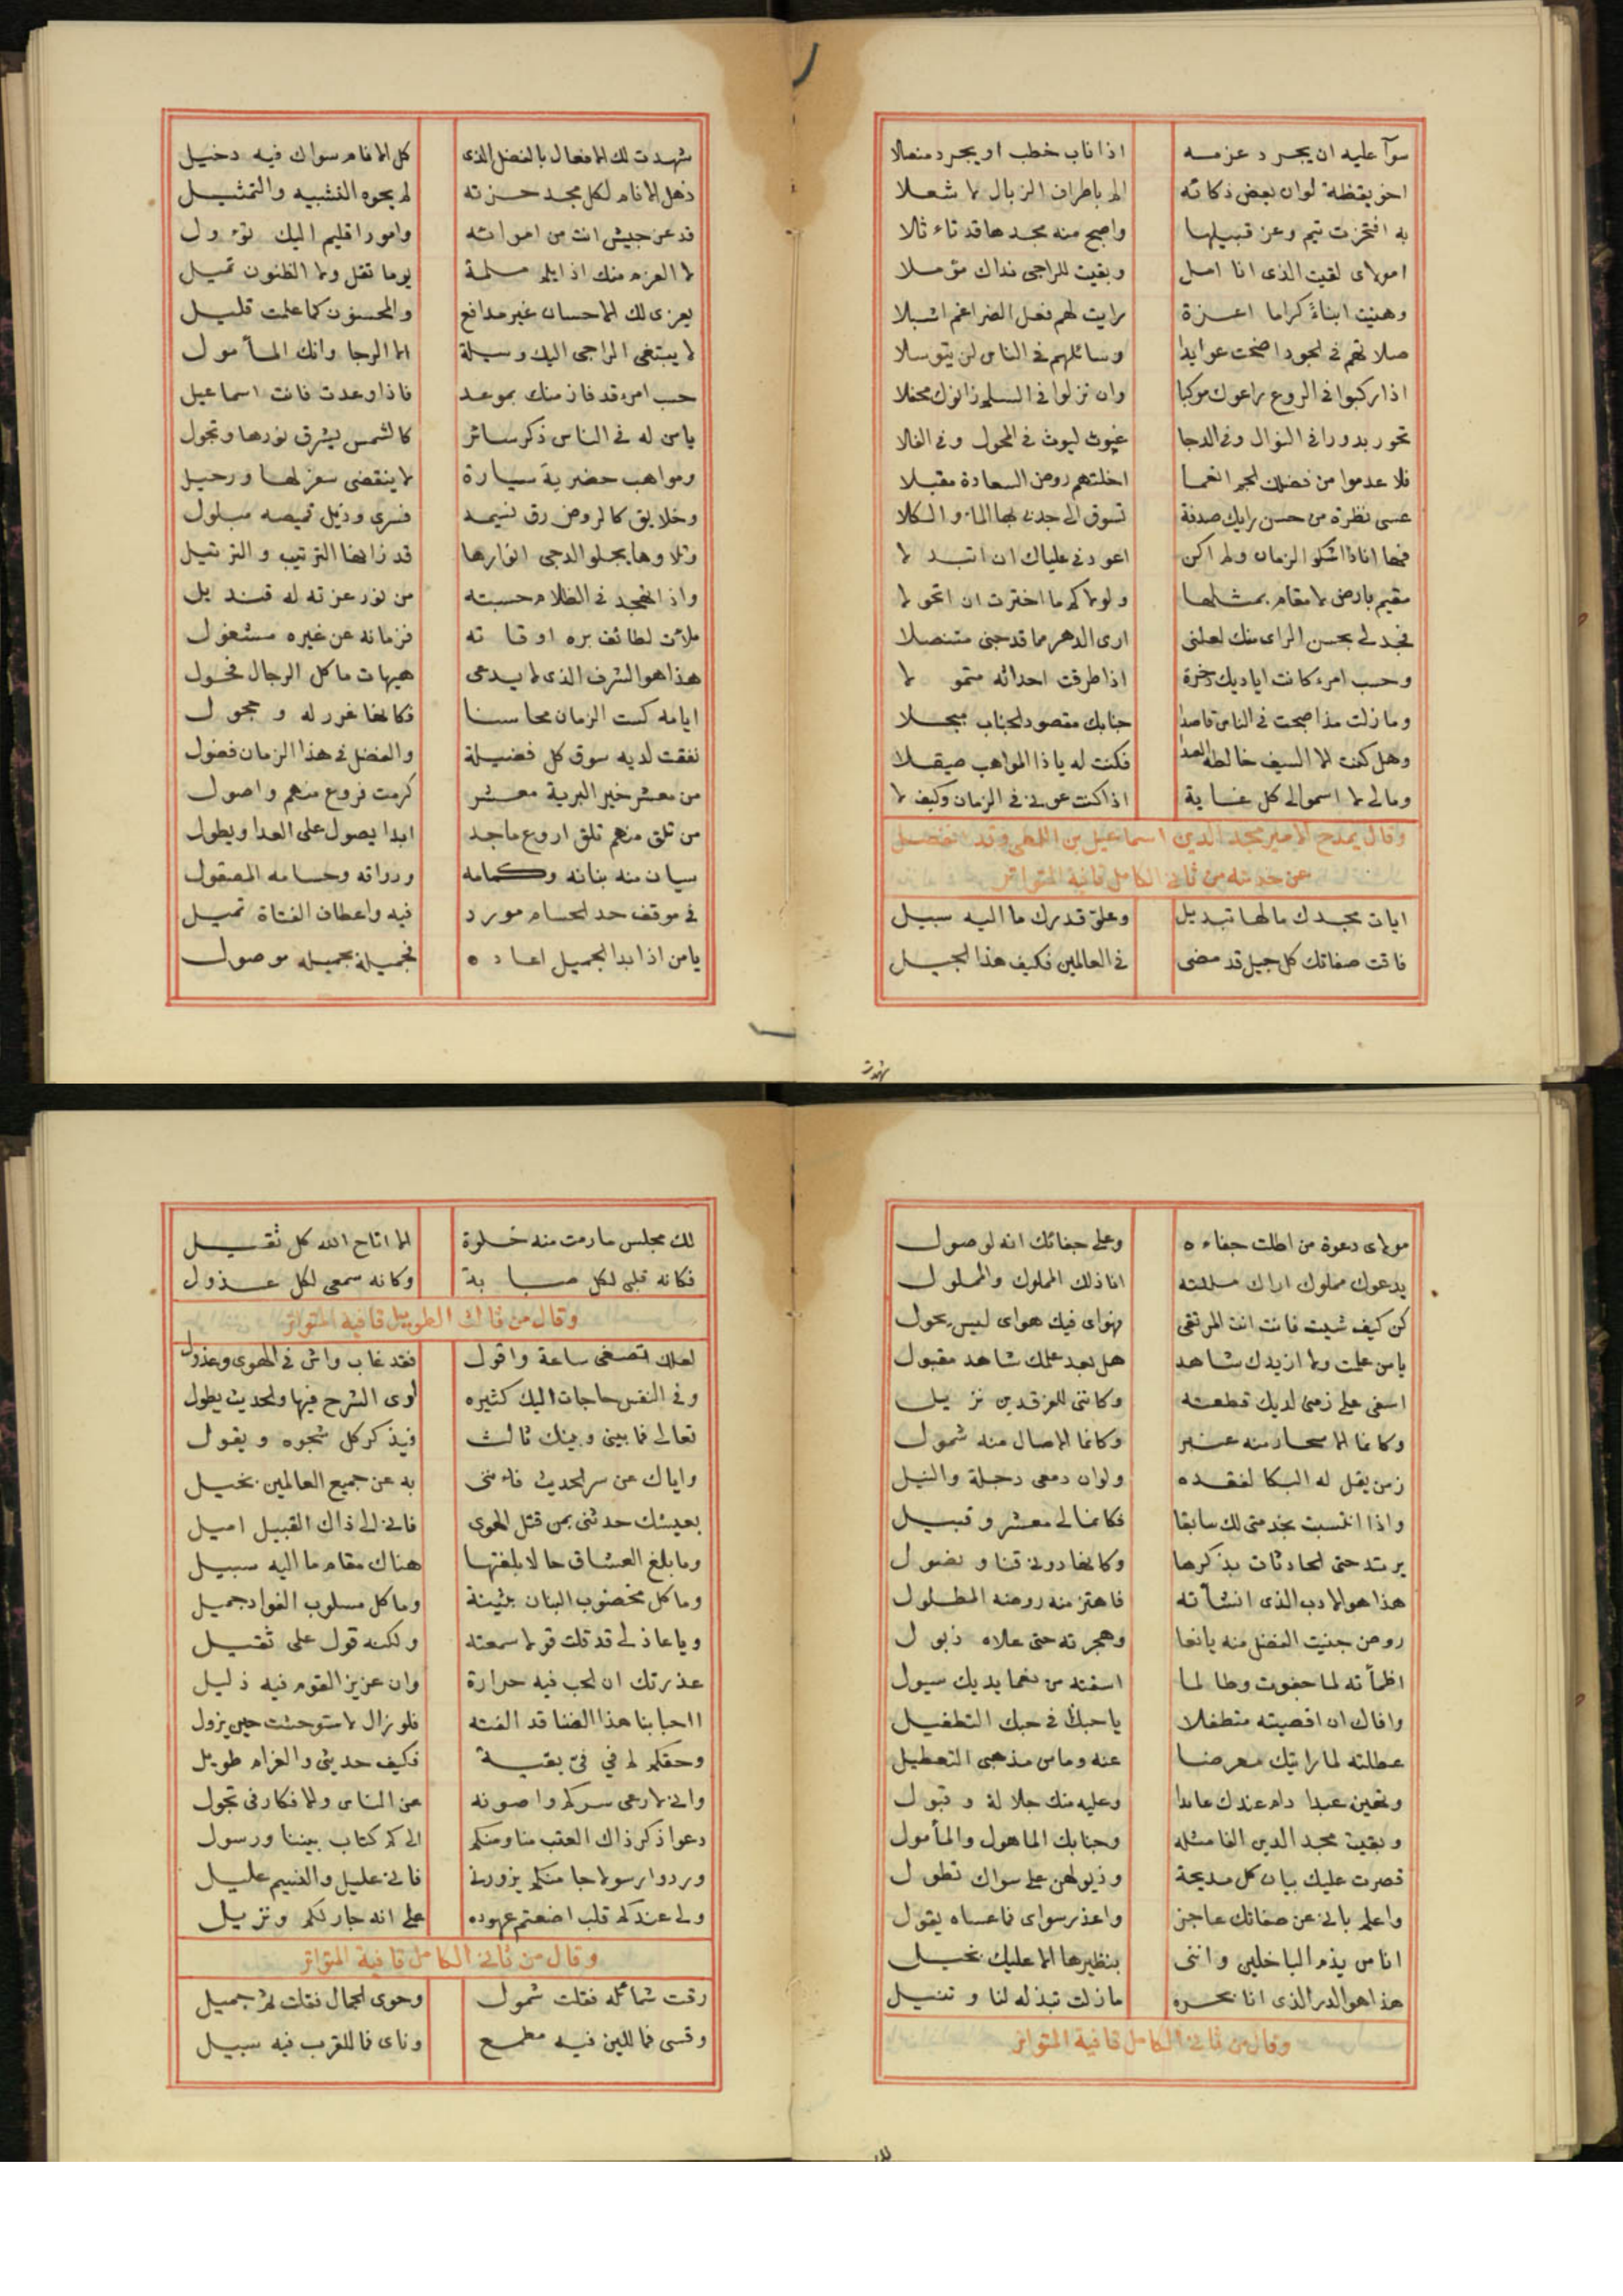 سوآ عليه ان يجرد عزمه اذا ناب خطب او يجرد منصلا
اخو يقظة لو ان بعض ذكائه الم باطراف الزبال لا شعلا
به افتخرت تيم وعز قبيلها واصبح منه مجدها قد تاءثلا
امولاى لقيت الذى انا امل وبقيت للراجى نداك مؤملا
وهنيت ابناء كراما اعزة رايت لهم فعل الضراغم اشبلا
صلاتهم فى الجود اضحت عوايدا وسائلهم فى الناس لن يتوسلا
اذا ركبوا فى الروع راعوك موكبا وان نزلوا فى السلم زانوك محفلا
تحور بدورا فى النوال وفى الدجا غيوث ليوث فى المحول وفى الفلا
فلا عدموا من فضلك الجم انعما اخلتهم روض السعادة مقبلا
عسى نظرة من حسن رايك صدفة تسوق الى جدبى بها الماء والكلا
فها اناذا اشكو الزمان ولم اكن اعود فى علياك ان اتبدلا
مقيم بارض لا مقام بمثلها ولولاكم ما اخترت ان اتحولا
فجد لى بحسن الراى منك لعلنى ارى الدهر مما قد جنى متنصلا
وحسب امرء كانت اياديك ذخرة اذا طرقت احداثه متمولا
وما زلت مذ اصبحت فى الناس قاصدا جنابك مقصود الجناب مبجلا
وهل كنت الا السيف خالطه الصدا فكنت له يا ذا المواهب صيقلا
ومالى لا اسمو الى كل غاية اذا كنت عونى فى الزمان وكيف لا
وقال يمدح الامير مجد الدين اسماعيل بن اللمطى وقد تفصل
عن خدمته من ثانى الكامل قافية المتواتر
ايات مجدك ما لها تبديل وعلو قدرك ما اليه سبيل
فاقت صفاتك كل جيل قد مضى فى العالمين فكيف هذا الجيل
شهدت
شهدت لك الافعال بالفضل الذى كل الانام سواك فيه دخيل
ذهل الانام لكل مجد حزته لم يحوه التشبيه والتمثيل
قد عز جيش انت من امرائه وامور اقليم اليك تؤول
لا العزم منك اذا يلم ملمة يوما تفل ولا الظنون تميل
يعزى لك الاحسان غير مدافع والمحسنون كما علمت قليل
لا يبتغى الراجى اليك وسيلة الا الرجا وانك المأمول
حسب امرء قد فاز منك بموعد فاذا وعدت فانت اسماعيل
يا من له فى الناس ذكر سائر كالشمس يشرق نورها وتجول
ومواهب حضرية سيارة لا ينقضى سفر لها ورحيل
وخلايق كالروض رق نسيمه فسرى وذيل قميصه مبلول
وتلاوها يجلو الدجى انوارها قد زانها الترتيب والترتيل
واذا تهجد فى الظلام حسبته من نور غرته له قنديل
ملأت لطائف بره اوقاته فزمانه عن غيره مشغول
هذا هو الشرف الذى لا يدعى هيهات ما كل الرجال فحول
ايامه كست الزمان محاسنا فكانها غرر له وحجول
نفقت لديه سوق كل فضيلة والفضل فى هذا الزمان فضول
من معشر خير البرية معشر كرمت فروع منهم واصول
من تلق منهم تلق اروع ماجد ابدا يصول على العدا ويطول
سيان منه بنانه وكمامه ورداؤه وحسامه المصقول
فى موقف حد الحسام مورد فيه واعطاف القناة تميل
يا من اذا بدا الجميل اعاده فجميله بجميله موصول
مولاى دعوة من اطلت جفاءه وعلى جفائك انه لوصول
يدعوك مملوك اراك مللته انا ذلك المملوك والمملول
كن كيف شيت فانت انت المرتضى فهواى فيك هواى ليس يحول
يا من علمت ولا ازيدك شاهد هل بعد علمك شاهد مقبول
اسفى على زمن لديك قطعته وكاننى للفرقدين نزيل
وكانما الاسحار منه عنبر وكانما الاصال منه شمول
زمن يقل له البكا لفقده ولو ان دمعى دجلة والنيل
واذا انتسبت بخدمتى لك سابقا فكانما لى معشر وقبيل
يرتد حتى الحادثات بذكرها وكانها دونى قنا ونصول
هذا هو الادب الذى انشأته فاهتز منه روضه المطلول
روض جنيت الفضل منه يانعا وهجرته حتى علاه ذبول
اظمأته لما جفوت وطالما اسقته من نعما يديك سيول
وافاك ان اقصيته متطفلا يا حبذا فى حبك التطفيل
عطلته لما رايتك معرضا عنه وما من مذهبى التعطيل
وتهين عبدا دام عندك عابدا وعليه منك جلالة وقبول
وبقيت مجد الدين الفا مثله وجنابك الماهول والمأمول
قصرت عليك بيات كل مديحة وذيولهن على سواك تطول
واعلم بانى عن صفاتك عاجز واعذر سواى فما عساه يقول
انا من يذم الباخلين واننى بنظيرها الا عليك بخيل
هذا هو الدر الذى انا بحره ما زلت تبذله لنا وتنيل
وقال من ثانى الكامل قافية المتواتر
لك
لك مجلس ما رمت منه خلوة الا اتاح الله كل ثقيل
فكانه قلبى لكل صبابة وكانه سمعى لكل عذول
وقال من ثالث الطويل قافية المتواتر
لعلك تصغى ساعة واقول فقد غاب واش فى الهوى وعذول
وفى النفس حاجات اليك كثيره ارى الشرح فيها والحديث يطول
تعالى فما بينى وبينك ثالث فيذكر كل شجوه ويقول
واياك عن سر الحديث فاءننى به عن جميع العالمين بخيل
بعيشك حدثنى بمن قتل الهوى فانى الى ذاك القبيل اميل
وما بلغ العشاق حالا بلغتها هناك مقام ما اليه سبيل
وما كل مخضوب البنان بثينة وما كل مسلوب الفواد جميل
ويا عاذلى قد قلت قولا سمعته ولكنه قول على ثقيل
عذرتك ان الحب فيه حرارة وان عزيز القوم فيه ذليل
ااحبابنا هذا الضنا قد الفته فلو زال لاستوحشت حين يزول
وحقكم لم يبق فى بقية فكيف حديثى والغرام طويل
وانى لارعى سركم واصونه عن الناس والافكار فى تجول
دعوا ذكر ذاك العتب منا ومنكم الى كم كتاب بيننا ورسول
وردوا رسولا جا منكم يزورنى فانى عليل والنسيم عليل
ولى عندكم قلب اضعتم عهوده على انه جار لكم ونزيل
وقال من ثانى الكامل قافية المتواتر
رقت شمائله فقلت شمول وحوى الجمال فقلت ثم جميل
وقسى فما للين فيه مطمع وناى فما للقرب فيه سبيل